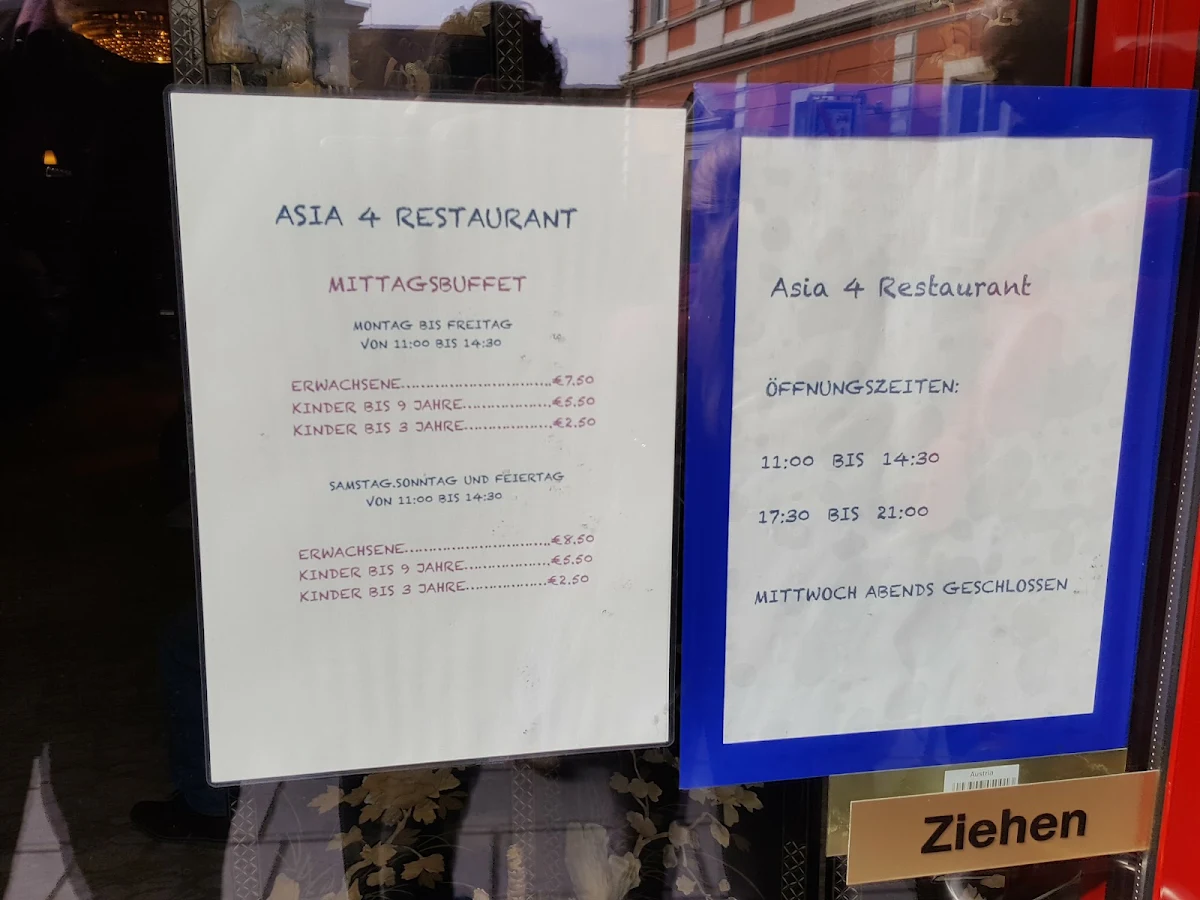 ASIA 4 RESTAURANT
MITTAGSBUFFET
MONTAG BIS FREITAG
VON 11:00 BIS 14:30
ERWACHSENE..............................€7.50
KINDER BIS 9 JAHRE.................€5.50
KINDER BIS 3 JAHRE.................€2.50
SAMSTAG.SONNTAG UND FEIERTAG
VON 11:00 BIS 14:30
ERWACHSENE.............................€8.50
KINDER BIS 9 JAHRE.................€5.50
KINDER BIS 3 JAHRE................€2.50
Asia 4 Restaurant
ÖFFNUNGSZEITEN:
11:00 BIS 14:30
17:30 BIS 21:00
MITTWOCH ABENDS GESCHLOSSEN
Austria
Ziehen